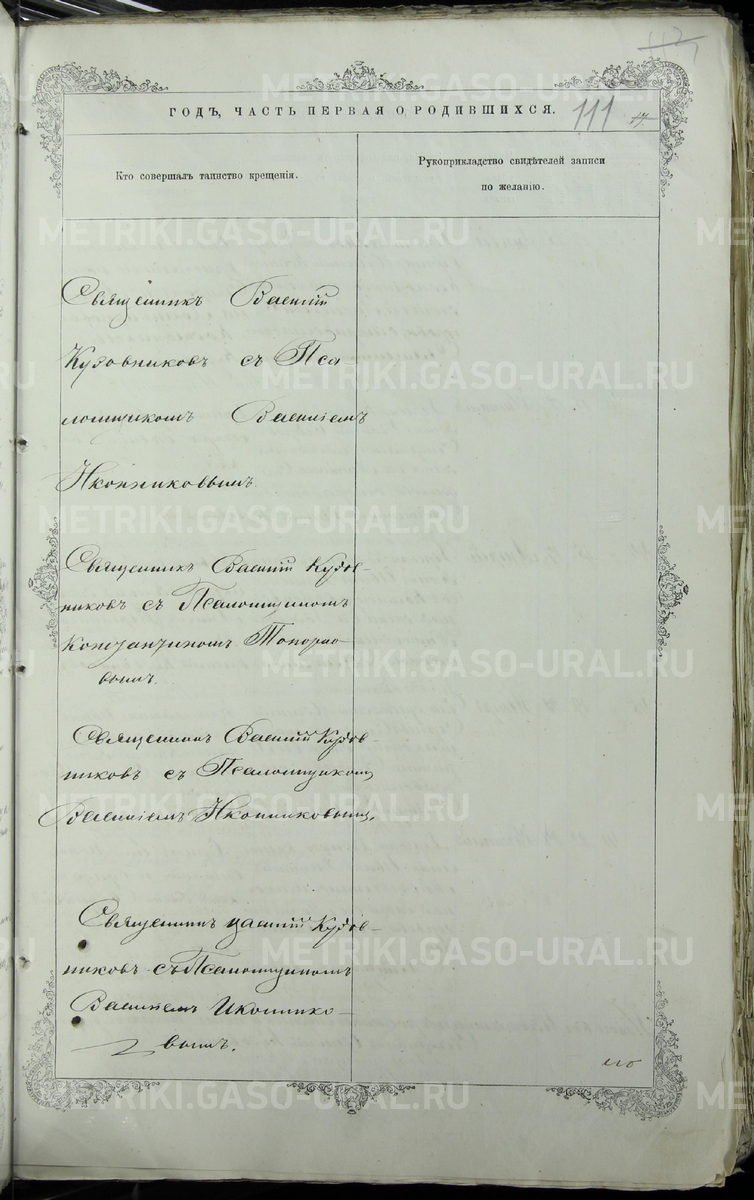 ГОДЪ, ЧАСТЬ ПЕРВАЯ О РОДИВШИХСЯ.
111
17
Кто совершалъ таинство крещенія.
Рукоприкладство свидѣтелей записи
по желанію.
Священникъ Василій
Кудовниковъ съ Пса-
ломщикомъ Василіемъ
Иконниковымъ.
Священникъ Василій Кудов-
никовъ съ Псаломщикомъ
Константиномъ Топорко-
вымъ.
Священникъ Василій Кудов-
никовъ съ Псаломщикомъ
Василіемъ Иконниковымъ.
Священникъ Василій Кудов-
никовъ съ Псаломщикомъ
Василіемъ Иконнико-
вымъ.
METRIKI.GASO-URAL.RU